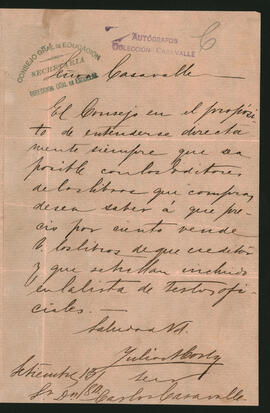 CONSEJO GRAL DE EDUCACION
SECRETARIA
DIRECCION GRAL DE ESCUELAS
AUTÓGRAFOS
COLECCIÓN CASAVALLE
C
Casavalle
El Consejo en el propósi
to de entenderse directa
mente siempre que sea
posible con los editores
de los libros que compra,
desea saber á que pre
cio por ciento vende
los libros de que es editor
y que se hallan incluidos
en la lista de textos ofi
ciales.
Saluda á Vd.
Julio
Setiembre 15/
Sr Dn Carlos Casavalle